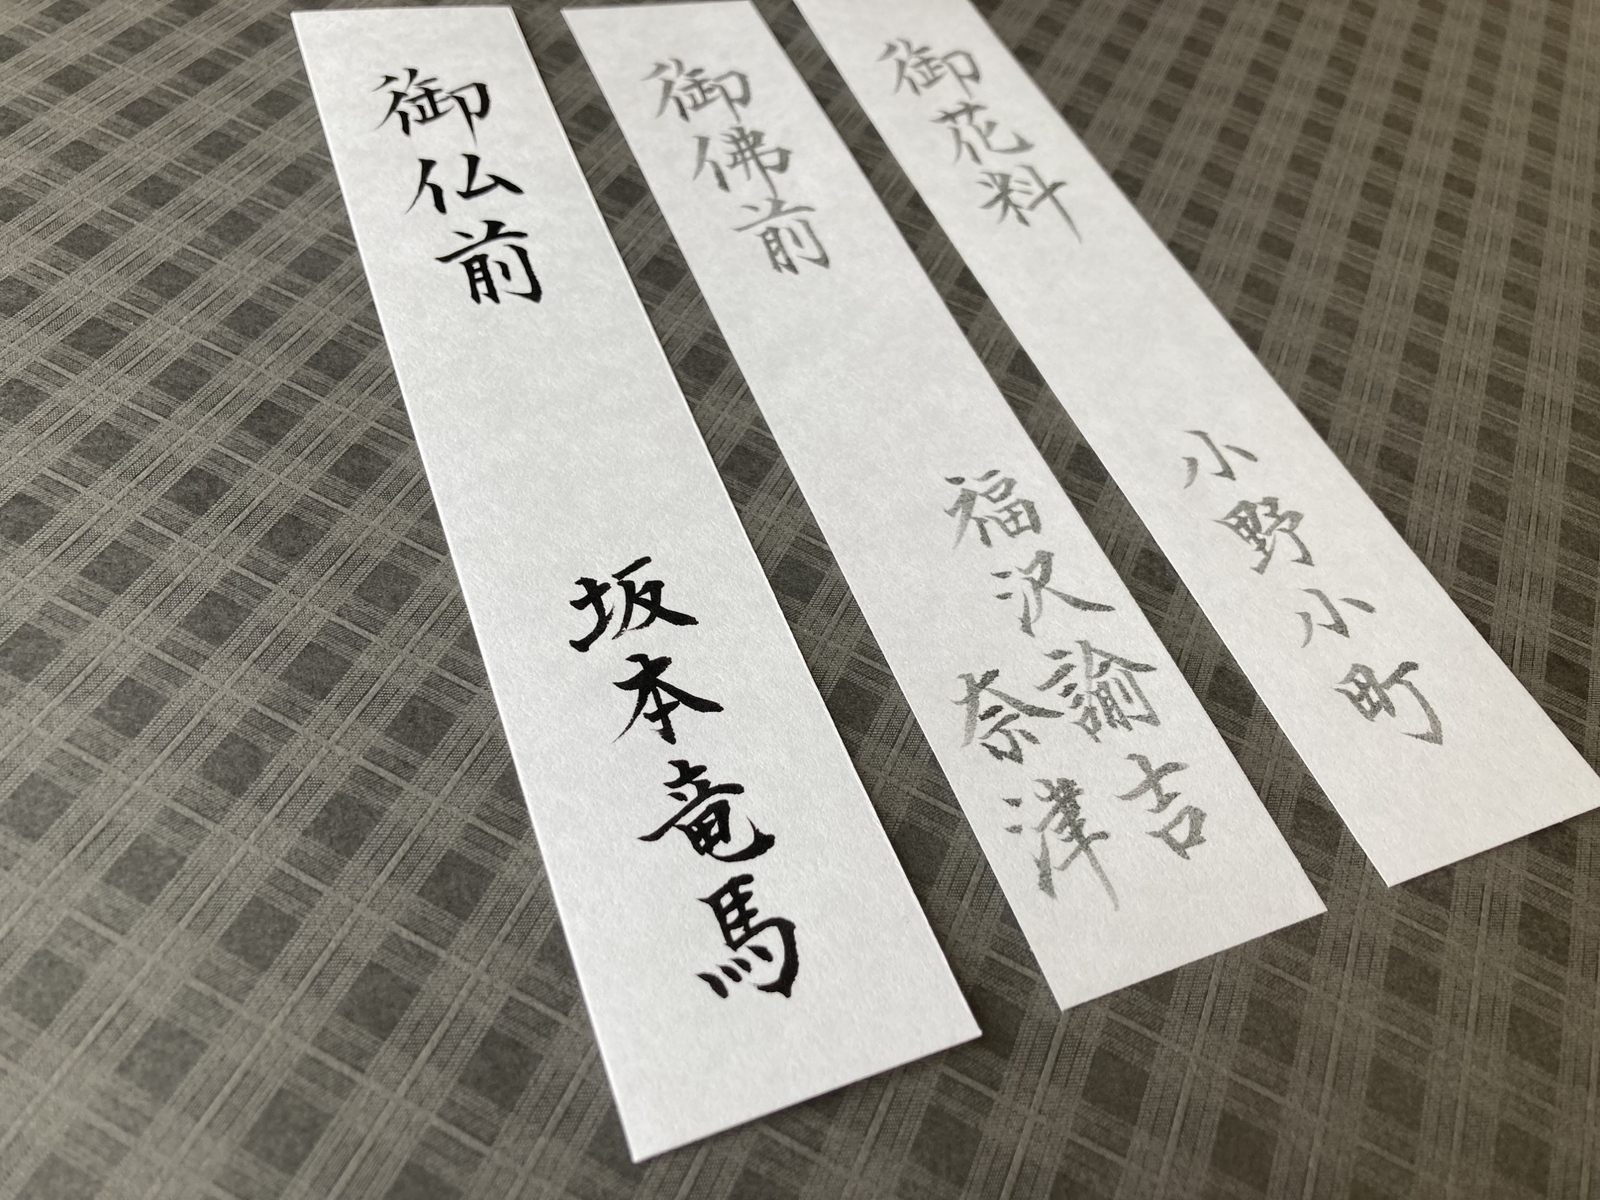 御仏前
坂本竜馬
御佛前
福沢諭吉
奈津
御花料
小野小町